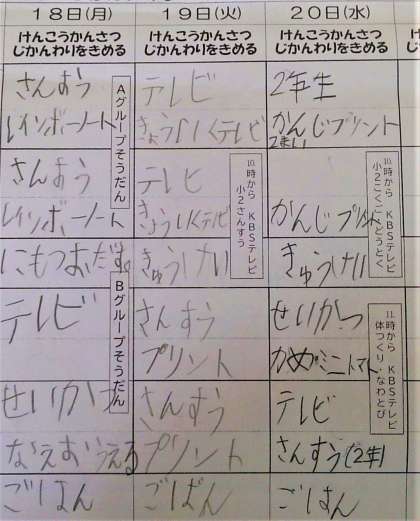 18日(月)
けんこうかんさつ
じかんわりをきめる
さんすう
レインボーノート
さんすう
レインボーノート
にもつおだす。
テレビ
せいかつ
なえおうえる
ごはん
Aグループそうだん
Bグループそうだん
19日(火)
けんこうかんさつ
じかんわりをきめる
テレビ
きょういくテレビ
テレビ
きょういくテレビ
きゅうけい
さんすう
プリント
さんすう
プリント
ごはん
10時から KBSテレビ
小2さんすう
20日(水)
けんこうかんさつ
じかんわりをきめる
2年生
かんじプリント
2まい
かんじプリント
きゅうけい
せいかつ
かめミニトマト
テレビ
さんすう(2年)
ごはん
10時から KBSテレビ
小2こくご・どうとく
11時から KBSテレビ
体つくり・なわとび